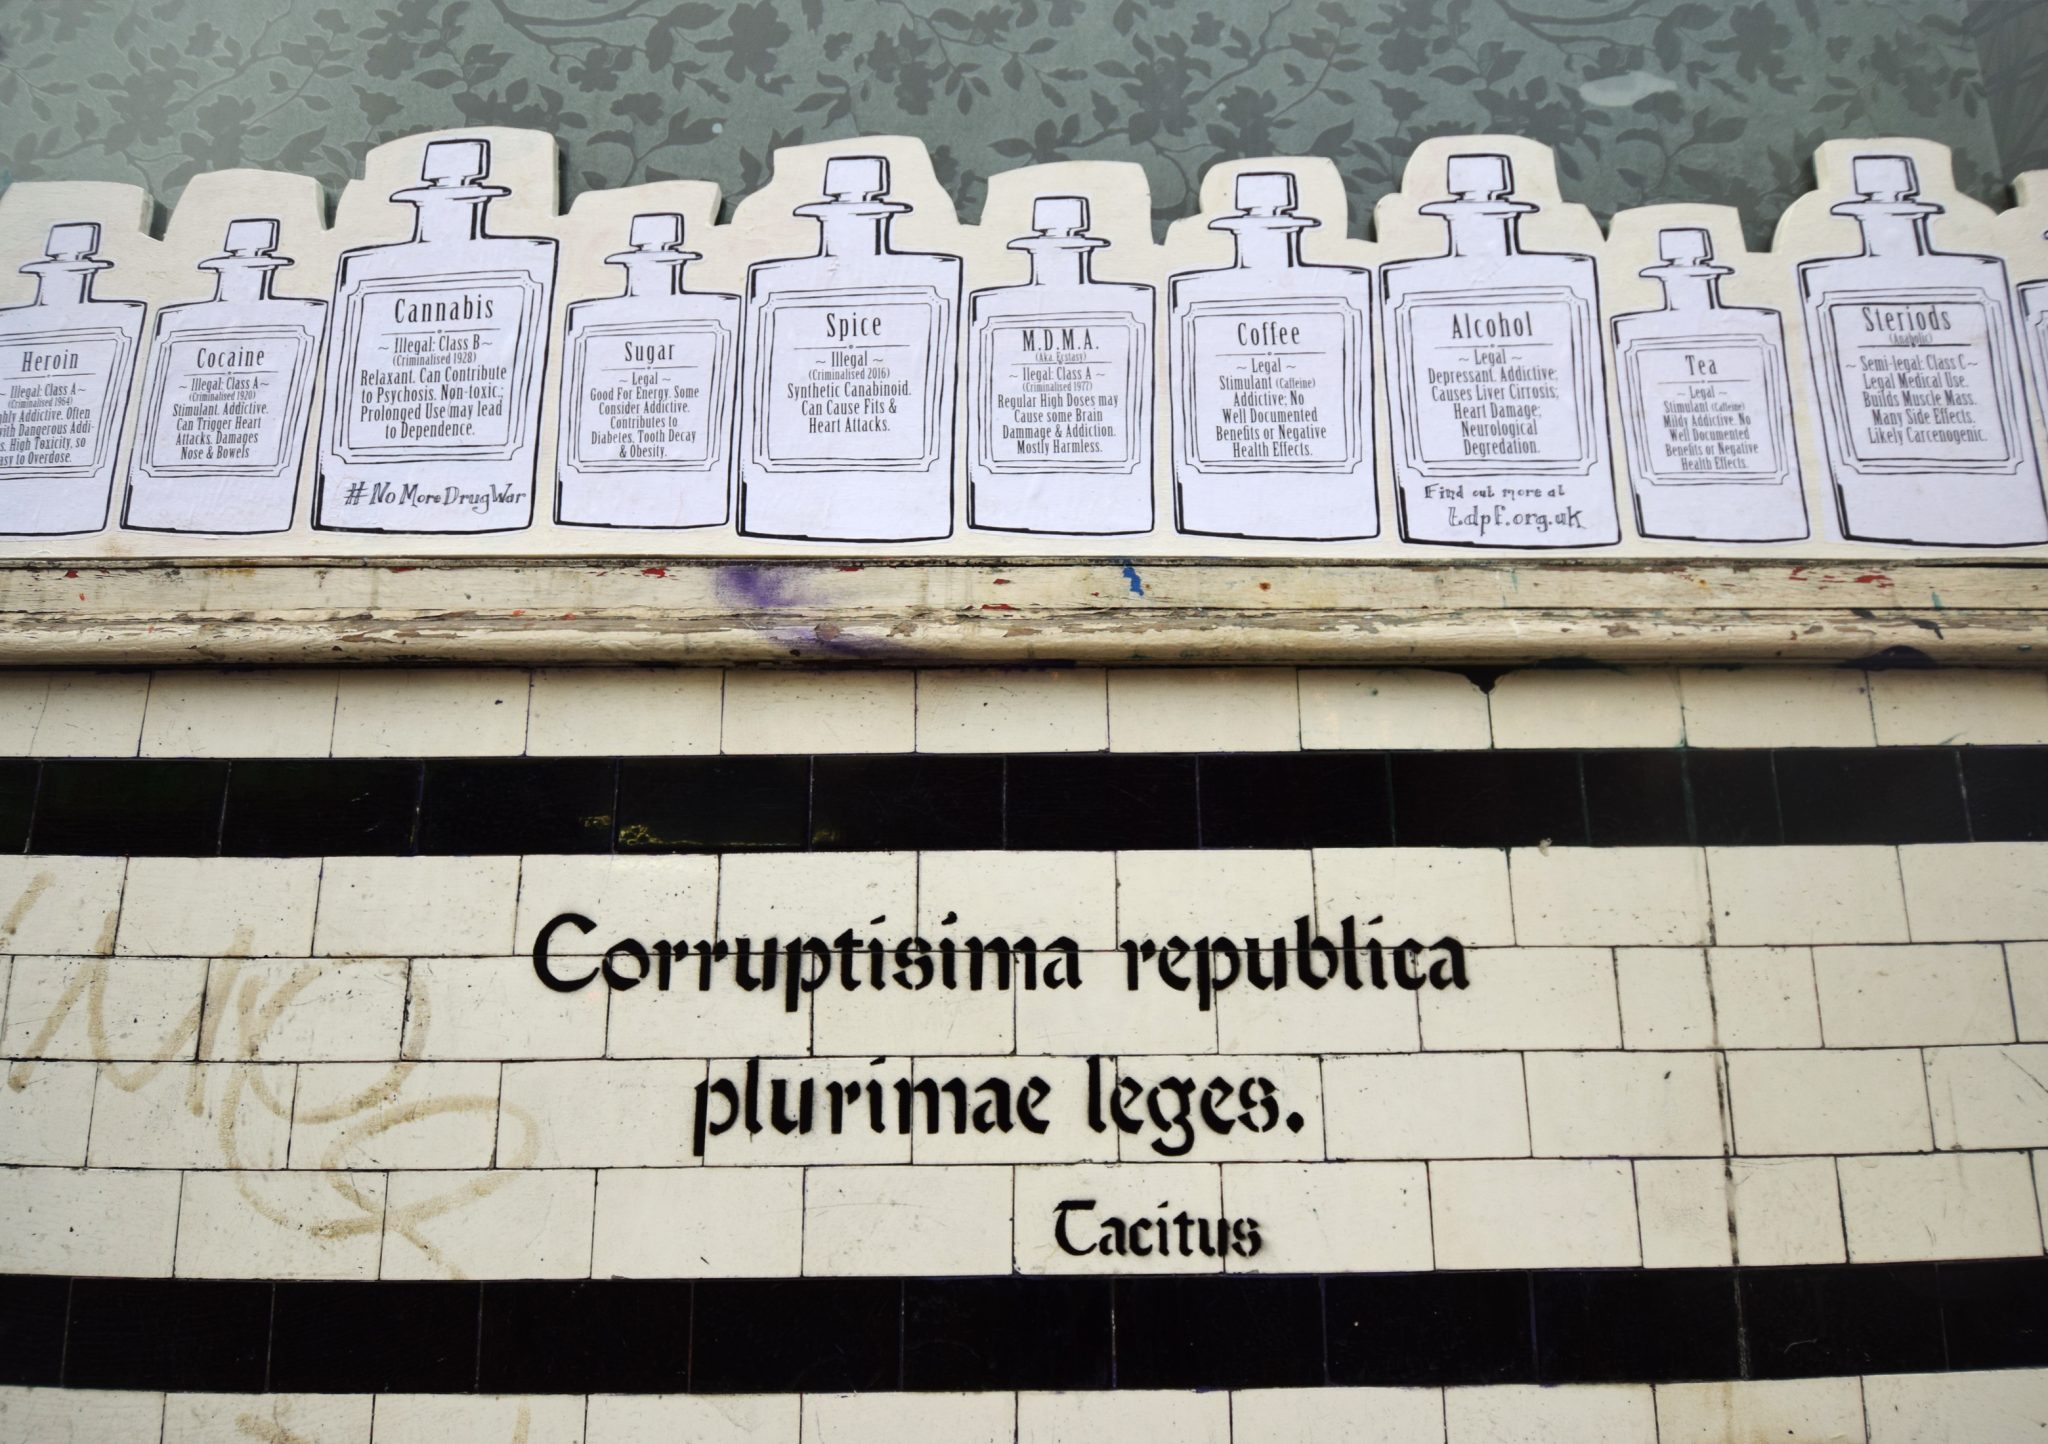 Heroin
Illegal: Class A~
(Criminalised 1964)
Addictive. Often
with Dangerous Addi-
High Toxicity, so
to Overdose.
Cocaine
~ Illegal: Class A ~
(Criminalised 1920)
Stimulant. Addictive.
Can Trigger Heart
Attacks. Damages
Nose & Bowels
Cannabis
~ Illegal: Class B ~
(Criminalised 1928)
Relaxant. Can Contribute
to Psychosis. Non-toxic.;
Prolonged Use may lead
to Dependence.
#NoMoreDrugWar
Sugar
~ Legal ~
Good For Energy. Some
Consider Addictive.
Contributes to
Diabetes, Tooth Decay
& Obesity.
Spice
~ Illegal ~
(Criminalised 2016)
Synthetic Canabinoid.
Can Cause Fits &
Heart Attacks.
M.D.M.A.
(Aka. Ecstasy)
~ Ilegal: Class A ~
(Criminalised 1977)
Regular High Doses may
Cause some Brain
Dammage & Addiction.
Mostly Harmless.
Coffee
~ Legal ~
Stimulant (Caffeine)
Addictive; No
Well Documented
Benefits or Negative
Health Effects.
Alcohol
~ Legal ~
Depressant. Addictive;
Causes Liver Cirrosis;
Heart Damage;
Neurological
Degredation.
Find out more at
tdpf.org.uk
Tea
~ Legal ~
Stimulant (Caffeine)
Mildy Addictive. No
Well Documented
Benefits or Negative
Health Effects.
Steriods
(Anabolic)
~ Semi-legal: Class C ~
Legal Medical Use.
Builds Muscle Mass.
Many Side Effects.
Likely Carcenogenic.
Corruptisima republica
plurimae leges.
Tacitus